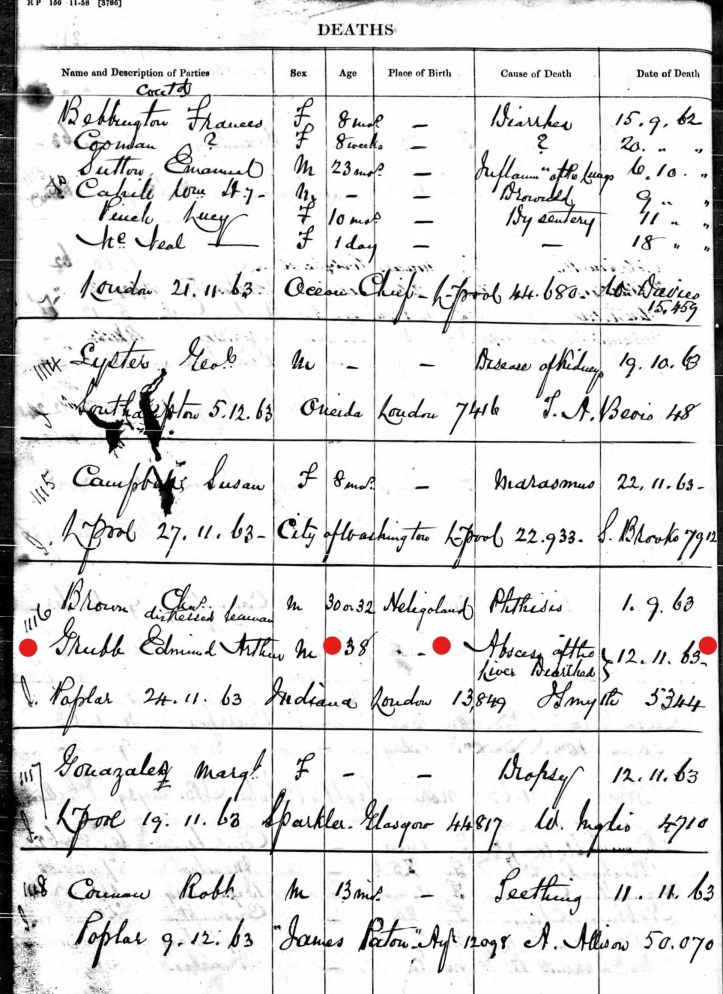 R P 150 11-58 [3786]
DEATHS
Name and Description of Parties Sex Age Place of Birth Cause of Death Date of Death
Contd
Bebbington Frances F 8 mos. — Diarrhea 15. 9. 62
Copman ? F 8 weeks — ? 20. „ „
Sutton Emanuel M 23 mos. — Inflamn of the Lungs 6. 10. „
Cahill Wm Hy - M - — Drowned 9 „ „
Pinch Lucy F 10 mos. — Dysentery 11 „ „
Mc Neal — F 1 day — — 18 „ „
London 21. 11. 63. Ocean Chief - L'pool 44.680. Davies
15.459
1114 Lyster Geo. M - — Disease of Kidneys 19. 10. 63
Southampton 5. 12. 63 Oneida London 7416 T. A. Bevis 48
1115 Campbell Susan F 8 mos. — Marasmus 22. 11. 63-
L'pool 27. 11. 63- City of Washington L'pool 22.933. S. Brooks 7912
1116 Brown Chas. M 30 or 32 Heligoland Phthisis 1. 9. 63
distressed seaman
Grubb Edmund Arthur M 38 - - Abscess of the } 12. 11. 63-
Liver Diarrhea
J. Poplar 24. 11. 63 Indiana London 13849 J Smyth 5344
1117 Gonazalez Margt. F - — Dropsy 12. 11. 63
L'pool 19. 11. 63 Sparkler. Glasgow 44817 W. Inglis 4710
1118 Robt. M 13 mos. — Teething 11. 11. 63
Poplar 9. 12. 63 "James Paton" Ayr 12098 A. Allison 50.070